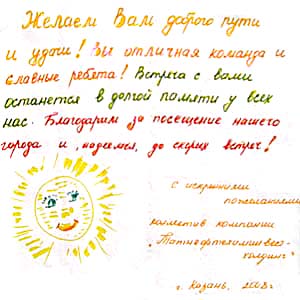 Желаем Вам доброго пути
и удачи! Вы отличная команда и
славные ребята! Встреча с вами
останется в долгой памяти у всех
нас. Благодарим за посещение нашего
города и, надеемся, до скорых встреч!
с искренними
пожеланиями
коллектив компании
"Татнефтехиминвест-
холдинг"
г. Казань, 2008г